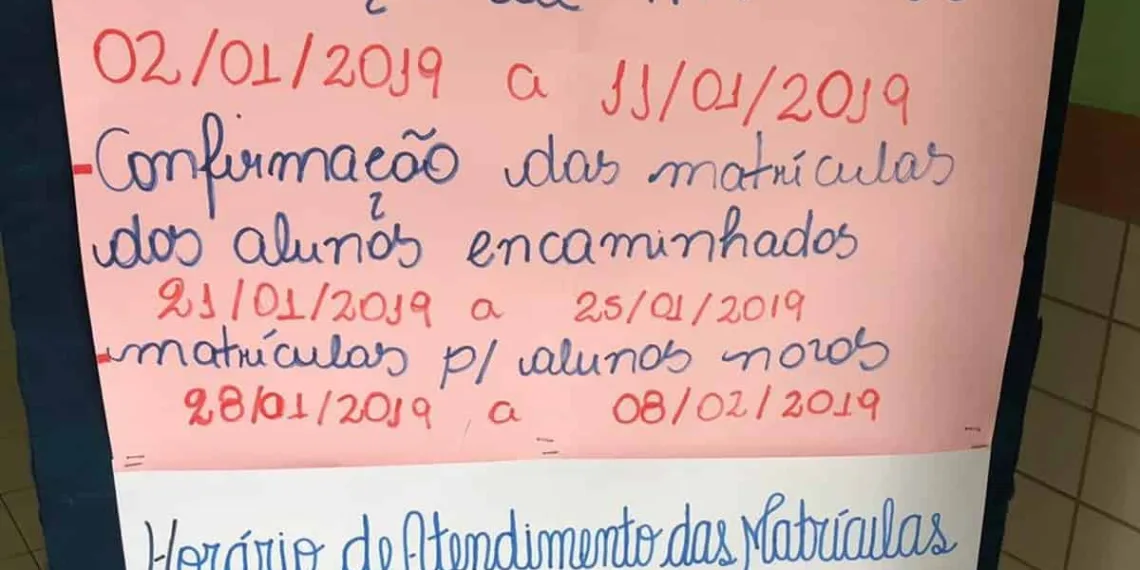 02/01/2019 a 11/01/2019
- Confirmação das matrículas
dos alunos encaminhados
21/01/2019 a 25/01/2019
- matrículas p/ alunos novos
28/01/2019 a 08/02/2019
Horário de Atendimento das Matrículas